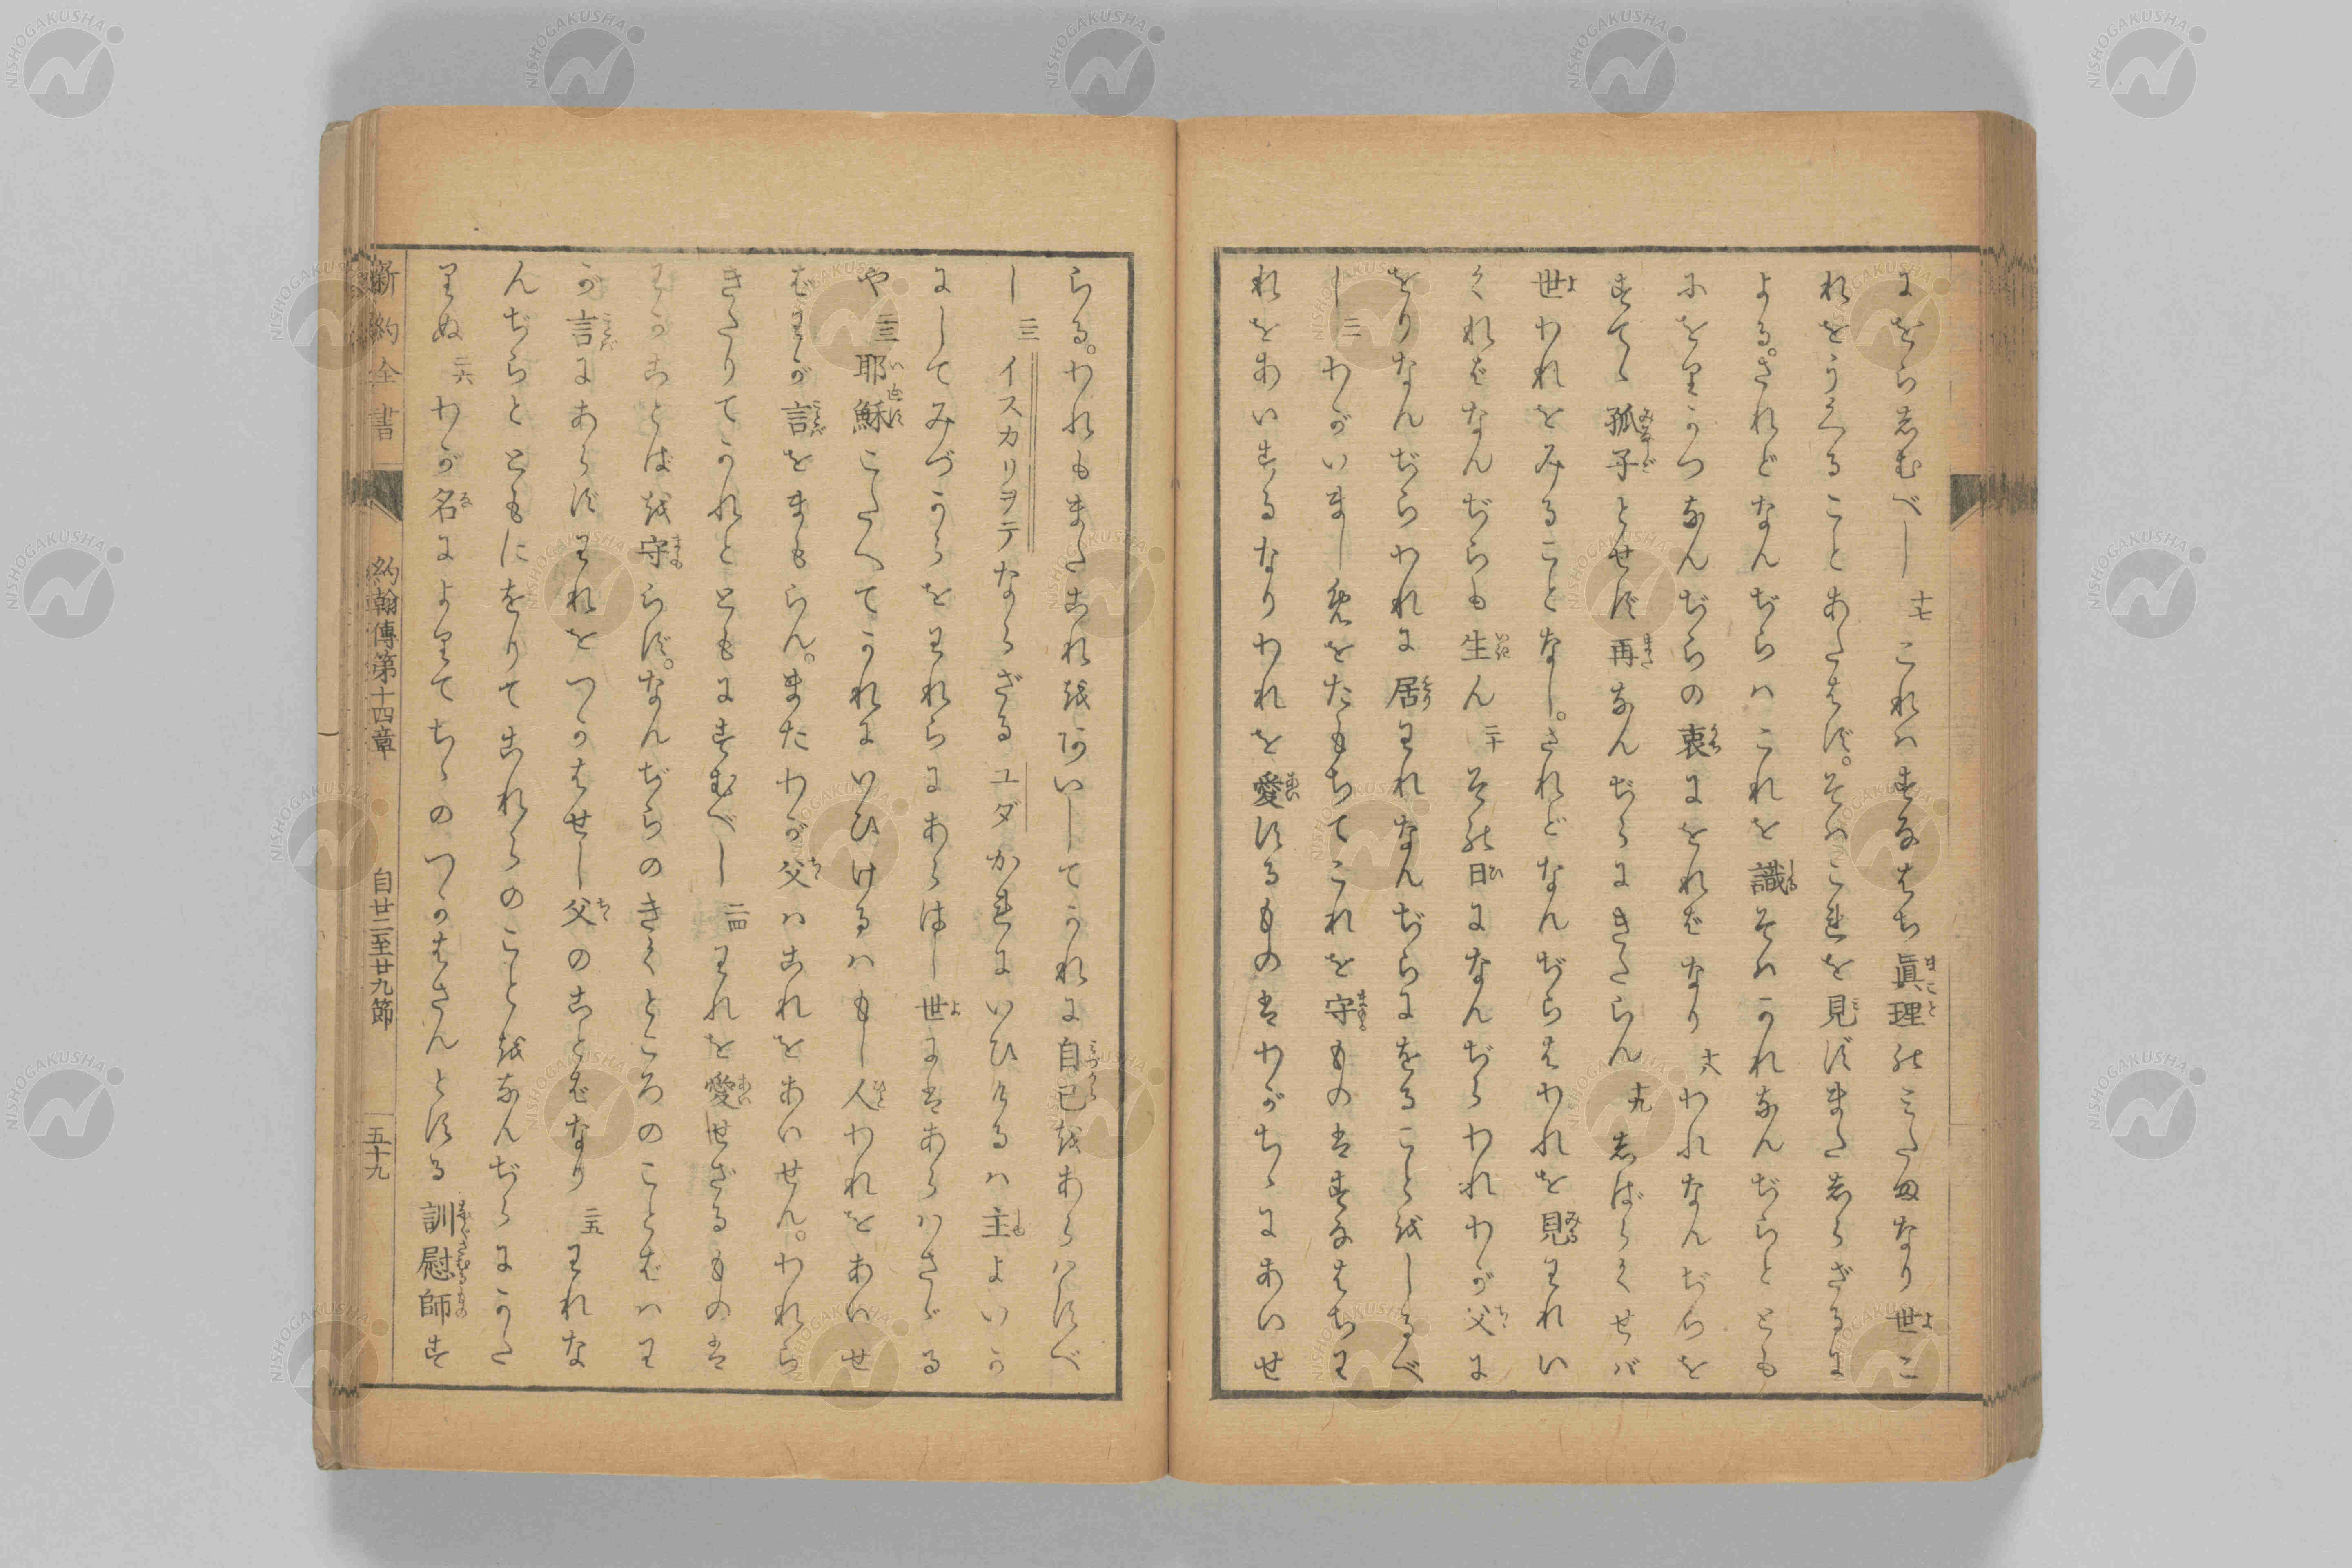 にをらしむべし 十七 これハすなはち眞理のみたまなり世こ
れをうくることあたはず。そハこれを見ずまたしらざるに
よる。されどなんぢらハこれを識そハかれなんぢらととも
にをりかつなんぢらの衷にをればなり 十八 われなんぢらを
すてゝ孤子とせず再なんぢらにきたらん 十九 しばらくせバ
世われをみることなし。されどなんぢらはわれを見われい
くればなんぢらも生ん 二十 その日になんぢらわれわが父に
をりなんぢらわれに居われなんぢらにをることをしるべ
し 二一 わがいましめをたもちてこれを守ものはすなはちわ
れをあいするなりわれを愛するものはわがちゝにあいせ
らる。われもまたこれをあいしてかれに自己をあらハすべ
し 二二 イスカリヲテならざるユダかれにいひけるハ主よいか
にしてみづからをわれらにあらはし世にはあらハさゞる
や 二三 耶穌こたへてかれにいひけるハもし人われをあいせ
ばわが言をまもらん。またわが父ハこれをあいせん。われら
きたりてかれとともにすむべし 二四 われを愛せざるものは
わがことばを守らず。なんぢらのきくところのことばハわ
が言にあらずわれをつかはせし父のことばなり 二五 われな
んぢらとともにをりてこれらのことをなんぢらにかた
りぬ 二六 わが名によりてちゝのつかはさんとする訓慰師す
新約全書 約翰傳第十四章 自廿二至廿九節 五十九